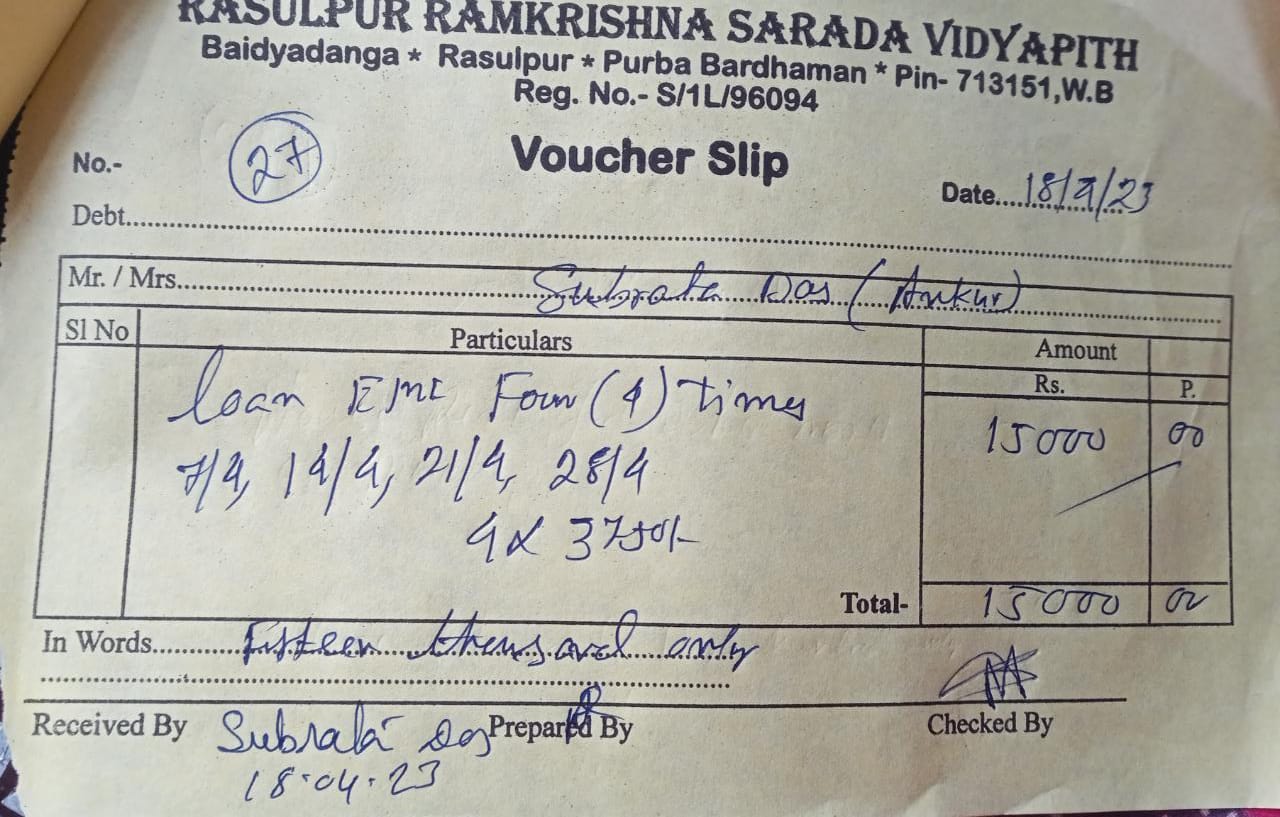 RASULPUR RAMKRISHNA SARADA VIDYAPITH
Baidyadanga * Rasulpur * Purba Bardhaman * Pin- 713151,W.B
Reg. No.- S/1L/96094
Voucher Slip
No.- 27
Date....18/4/23
Debt.....
Mr. / Mrs.....Subrata Das (Ankur)
Sl No Particulars Amount
Rs. P.
loan EMI Four (4) times 15000 00
7/4, 14/4, 21/4, 28/4
4x 3750/-
Total- 15000 00
In Words.....Fifteen thousand only
Received By Subrata Das Prepared By Checked By
18.04.23